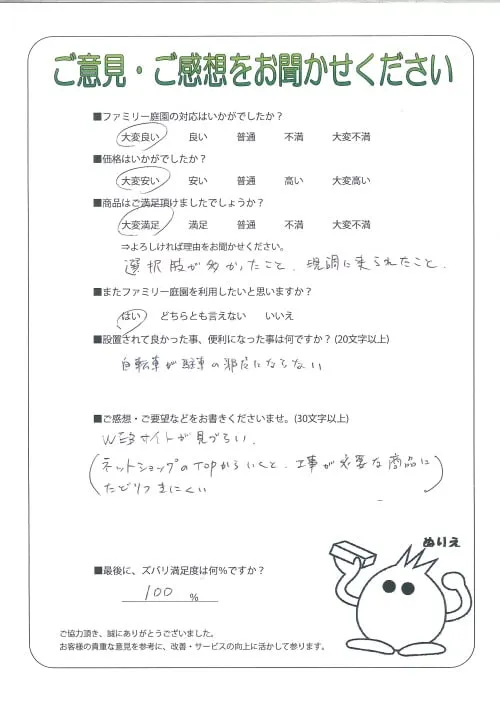 ご意見・ご感想をお聞かせください
■ファミリー庭園の対応はいかがでしたか？
大変良い 良い 普通 不満 大変不満
■価格はいかがでしたか？
大変安い 安い 普通 高い 大変高い
■商品はご満足頂けましたでしょうか？
大変満足 満足 普通 不満 大変不満
⇒よろしければ理由をお聞かせください。
選択肢が多かったこと、現調に来られたこと。
■またファミリー庭園を利用したいと思いますか？
はい どちらとも言えない いいえ
■設置されて良かった事、便利になった事は何ですか？(20文字以上)
自転車が駐車の邪魔にならない
■ご感想・ご要望などをお書きくださいませ。(30文字以上)
WEBサイトが見づらい、
(ネットショップのTOPからいくと、工事が必要な商品に
たどりつきにくい)
ぬりえ
■最後に、ズバリ満足度は何％ですか？
100 %
ご協力頂き、誠にありがとうございました。
お客様の貴重な意見を参考に、改善・サービスの向上に活かして参ります。